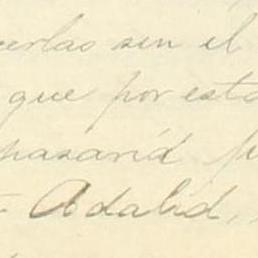 cerlas sin el
que por esta
pasará
Adalid,